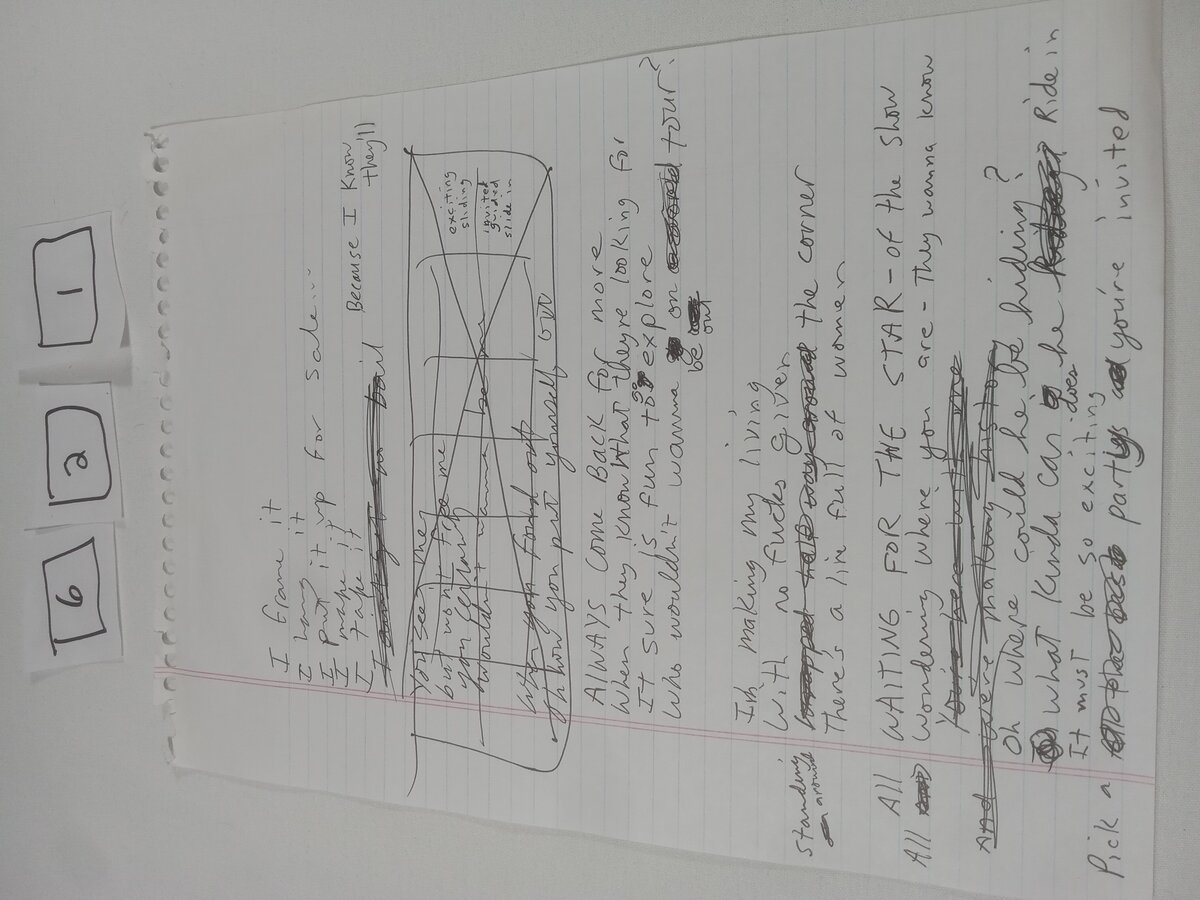 6 2 1
I frame it
I hang it
I put it up for sale...
I make it
I take it Because I know they'll
You see me
but won't
exciting
sliding
invited
guided
slide in
wouldn't wanna be me
When you found out
how you put yourself out
Always come Back for more
When they know what they're looking for
It sure is fun to go explore
Who wouldn't wanna be out on tour?
I'm making my living
With no fucks given
standing around the corner
There's a line full of women
All WAITING FOR THE STAR - OF the Show
All Wondering where you are - They wanna know
You're here with me
And we're making history
Oh where could he be hiding?
What kinda car does he Ride in
It must be so exciting
Pick a party you're invited